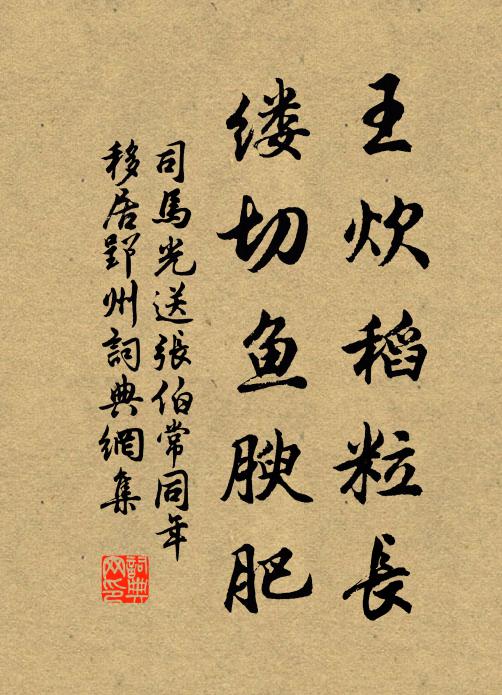 王炊稻粒長
缕切鱼腴肥
司馬光送張伯常同年
移居郢州詞典網集
詞典
网印